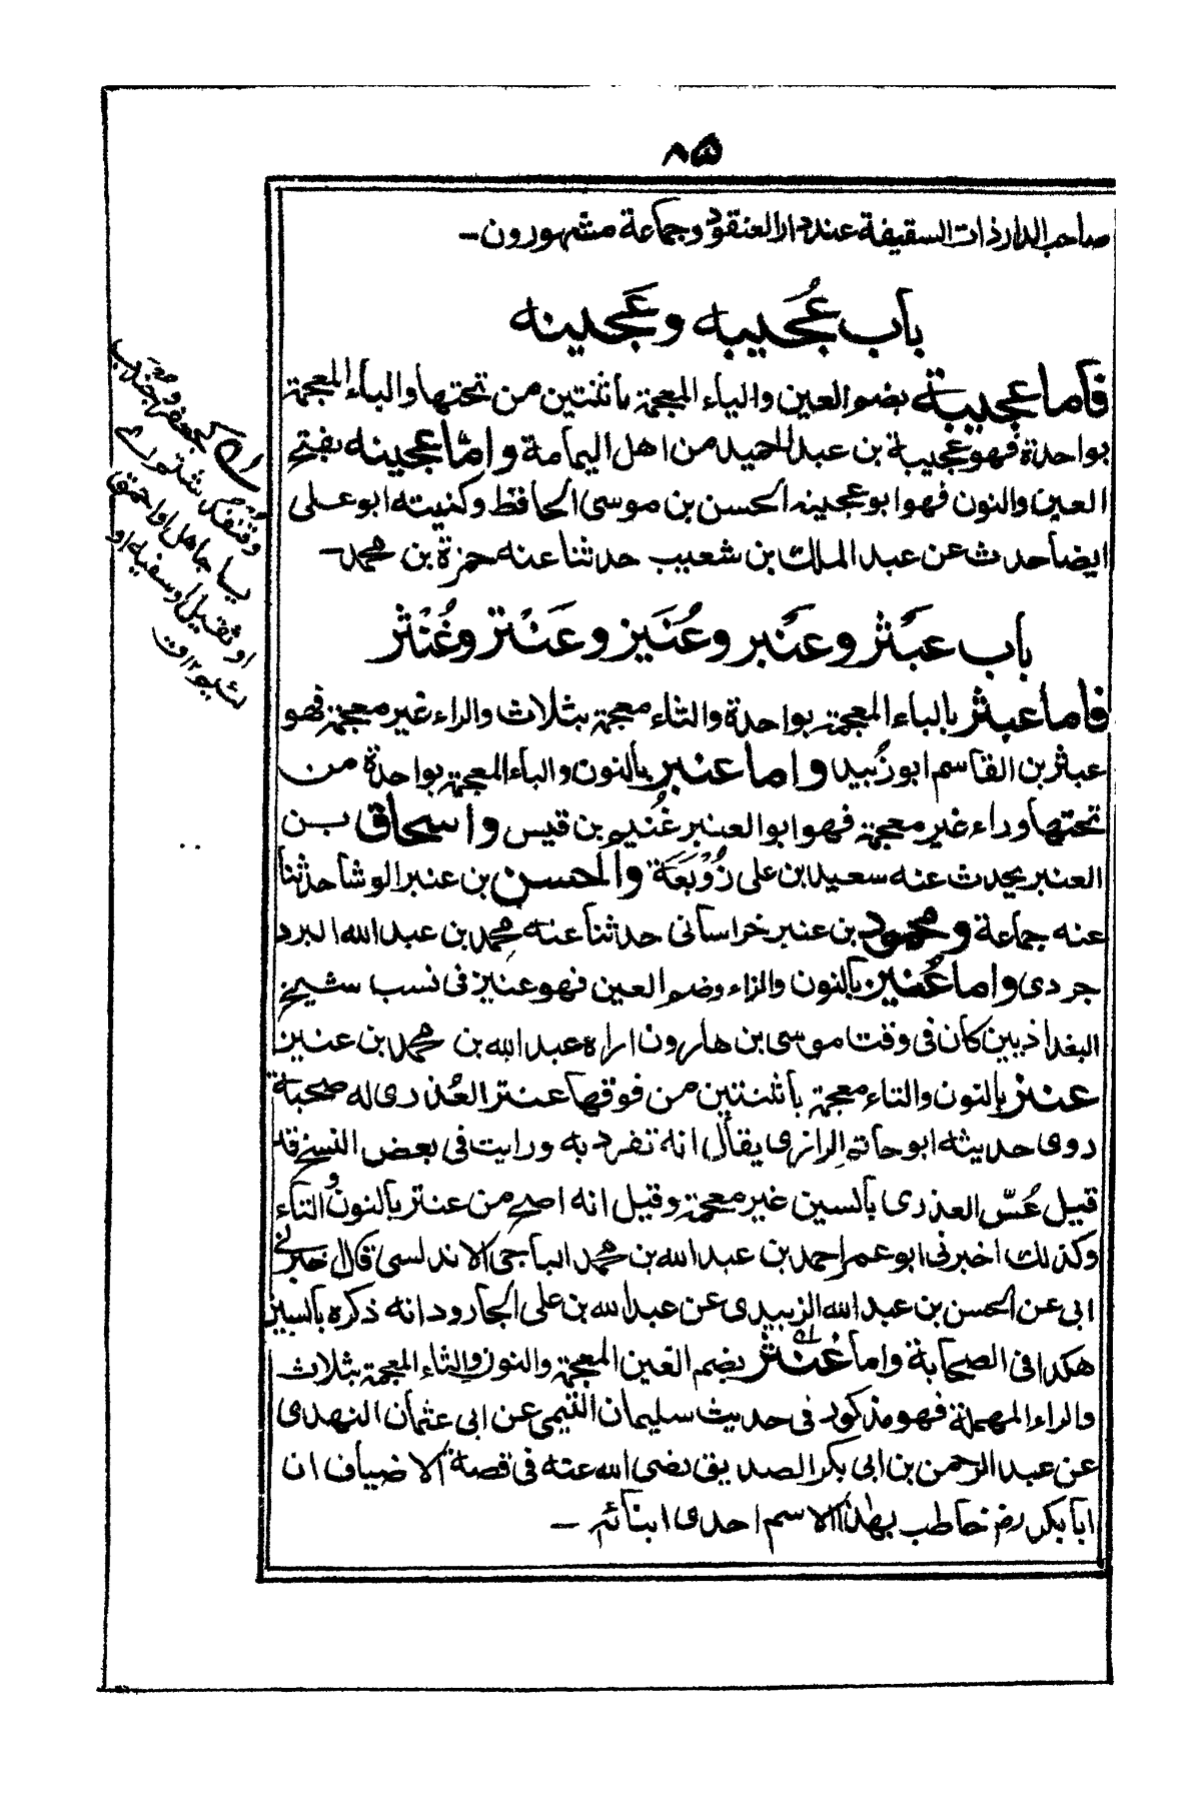 ٨٥
صاحب الدار ذات السقيفة عند دار العنقود وجماعة مشهورون -
باب عُجَيبه وعَجينه
فاما عجيبة بضم العين والياء المعجمة باثنتين من تحتها والباء المعجمة
بواحدة فهو عجيبة بن عبد الحميد من اهل اليمامة واما عجينه بفتح
العين والنون فهو ابو عجينه الحسن بن موسى الحافظ وكنيته ابو على
ايضا حدث عن عبد الملك بن شعيب حدثنا عنه حمزة بن محمد -
باب عَبْثر وعَنْبر وعُنَيز وعَنْتر وغُنْثَر
فاما عبثر بالباء المعجمة بواحدة والثاء معجمة بثلاث والراء غير معجمة فهو
عبثر بن القاسم ابو زُبيد واما عنبر بالنون والباء المعجمة بواحدة من
تحتها وراء غير معجمة فهو ابو العنبر غُنيم بن قيس واسحاق بن
العنبر يحدث عنه سعيد بن على زُوْبَعَة والحسن بن عنبر الوشا حدثنا
عنه جماعة ومحمود بن عنبر خراسانى حدثنا عنه محمد بن عبد الله البرد
جردى واما عُنيز بالنون والزاء وضم العين فهو عنيز فى نسب شيخ
البغداذيين كان فى وقت موسى بن هارون اراه عبد الله بن محمد بن عنيز
عنتر بالنون والتاء معجمة باثنتين من فوقها عنتر العُذرى له صحبة
روى حديثه ابو حاتم الرازى يقال انه تفرد به ورايت فى بعض النسخ قد
قيل عُسّ العذرى بالسين غير معجمة وقيل انه اصح من عنتر بالنون والتاء
وكذلك اخبرنى ابو عمر احمد بن عبد الله بن محمد الباجى الاندلسى قال خبرنى
ابى عن الحسن بن عبد الله الزبيدى عن عبد الله بن على الجارود انه ذكره بالسين
هكذا فى الصحابة واما غُنْثَر بضم الغين المعجمة والنون والثاء المعجمة بثلاث
والراء المهملة فهو مذكور فى حديث سليمان التيمى عن ابى عثمان النهدى
عن عبد الرحمن بن ابى بكر الصديق رضى الله عنه فى قصة الاضياف ان
ابا بكر رضه خاطب بهذا الاسم احدى ابنائه -
كجعفر وجندب
وقُنفُذ شتورے
يا جاهل او احمق
او ثقيل او سفيه او
لئيم ١٢ ق